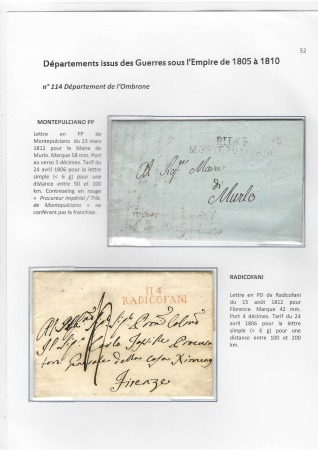 52
Départements issus des Guerres sous l'Empire de 1805 à 1810
n° 114 Département de l'Ombrone
MONTEPULCIANO PP
Lettre en PP de
Montepulciano du 23 mars
1812 pour le Maire de
Murlo. Marque 58 mm. Port
au verso 3 décimes. Tarif du
24 avril 1806 pour la lettre
simple (< 6 g) pour une
distance entre 50 et 100
km. Contreseing en rouge
« Procureur impérial / Trib.
de Montepulciano » ne
conférant pas la franchise.
Al Sigr Maire
di
Murlo
114
RADICOFANI
Firenze
RADICOFANI
Lettre en PD de Radicofani
du 15 août 1812 pour
Florence. Marque 42 mm.
Port 4 décimes. Tarif du 24
avril 1806 pour la lettre
simple (< 6 g) pour une
distance entre 100 et 200
km.